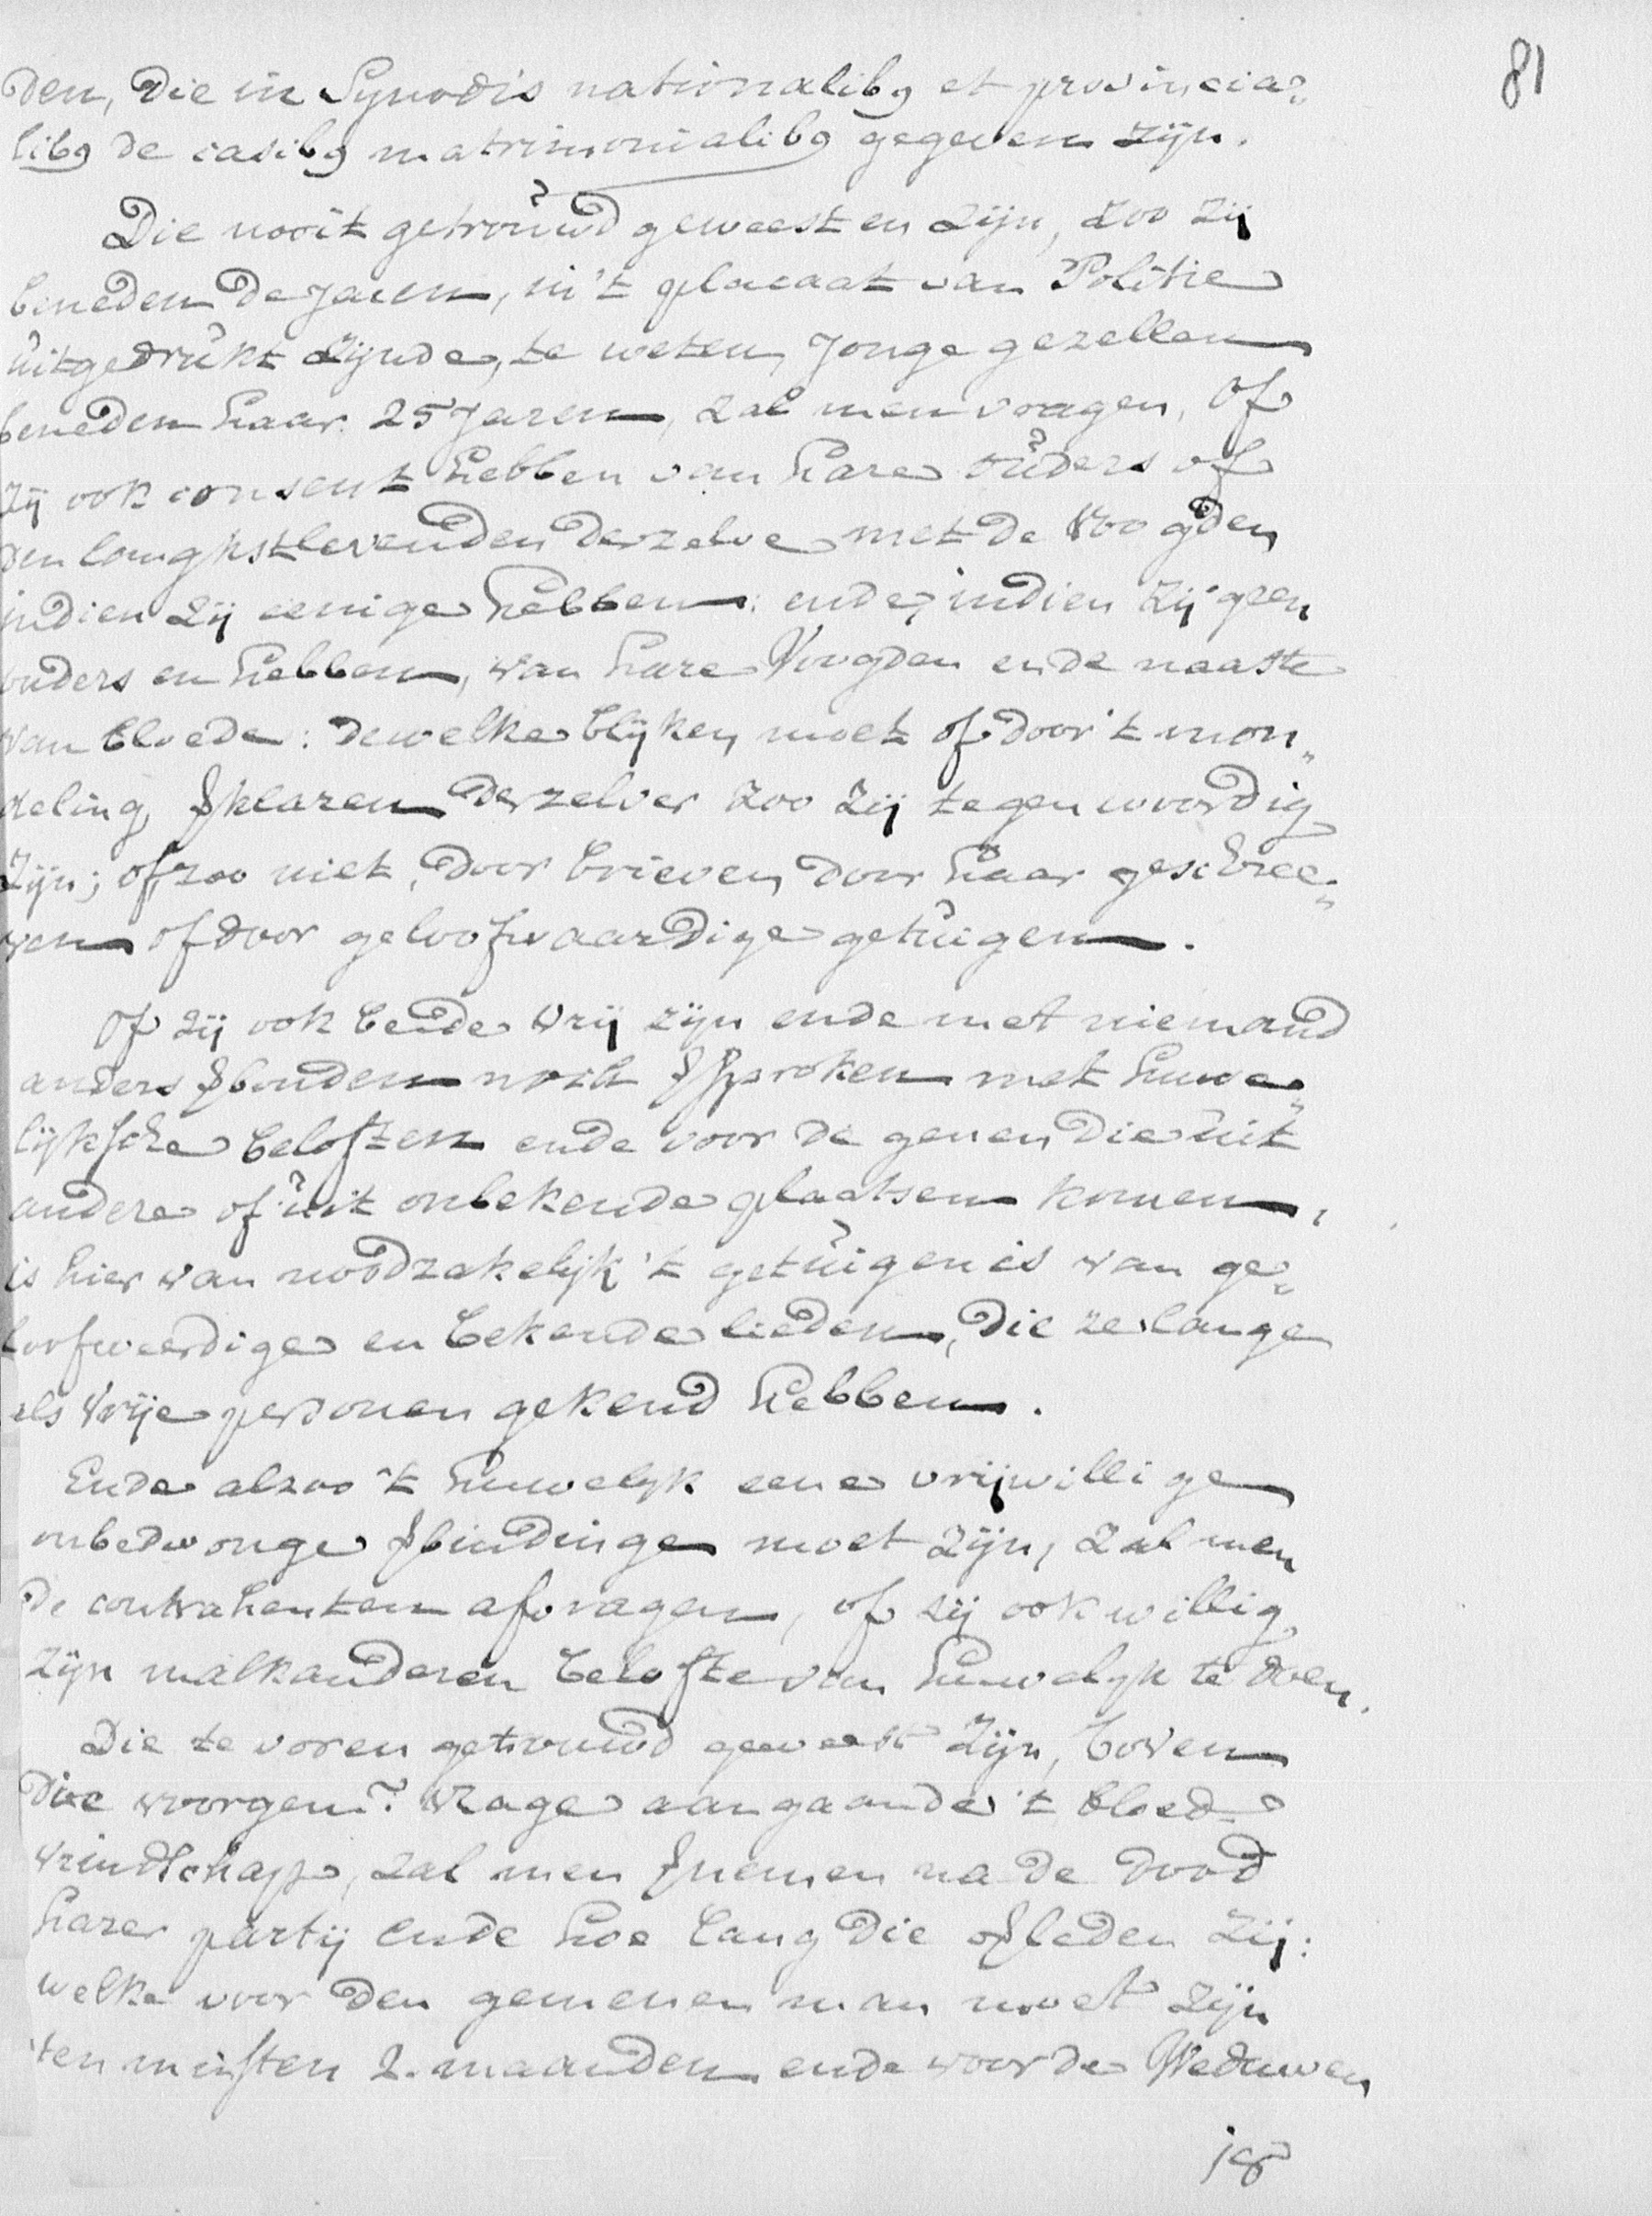 81
den, die in Synodis nationalib9 et provincia=
lib9 de casib9 matrimonialib9 gegeven zijn.
Die nooit getrouwd geweest en zijn, zoo zij
beneden de jaren, in 't placaat van Politie
uitgedrukt zijnde, te weten, Jonge gezellen
beneden haar 25 jaren, zal men vragen, of
zij ook consent hebben van hare ouders of
den langhstlevenden derzelve met de Voogden
indien zij eenige hebben: ende, indien zij geen
ouders en hebben, van hare Voogden ende naaste
van bloede: dewelke blijken moet of door 't mon„
deling vklaren derzelver zoo zij tegenwoordig
zijn; of, zoo niet, door brieven door haar geschree„
ven of door geloofwaardige getuigen.
Of zij ook beide vrij zijn ende met niemand
anders vbonden noch vsproken met huwe„
lijksche beloften ende voor de genen die uit
andere of uit onbekende plaatsen komen,
is hier van noodzakelijk 't getuigenis van ge„
loofweerdige en bekende lieden, die ze lange
als vrije personen gekend hebben.
Ende alzoo 't huwelyk eene vrijwillige
onbedwonge vbindinge moet zijn, zal men
de contrahenten afvragen, of zij ook willig
zijn malkanderen belofte van huwelyk te doen.
Die te voren getrouwd geweest zijn, boven
die voorgem. vrage aangaande 't bloed=
vrindschap, zal men vnemen na de dood
harer partij ende hoe lang die ovleden zij:
welke voor den gemenen man moet zijn
ten minsten 2. maanden ende voor de Weduwen